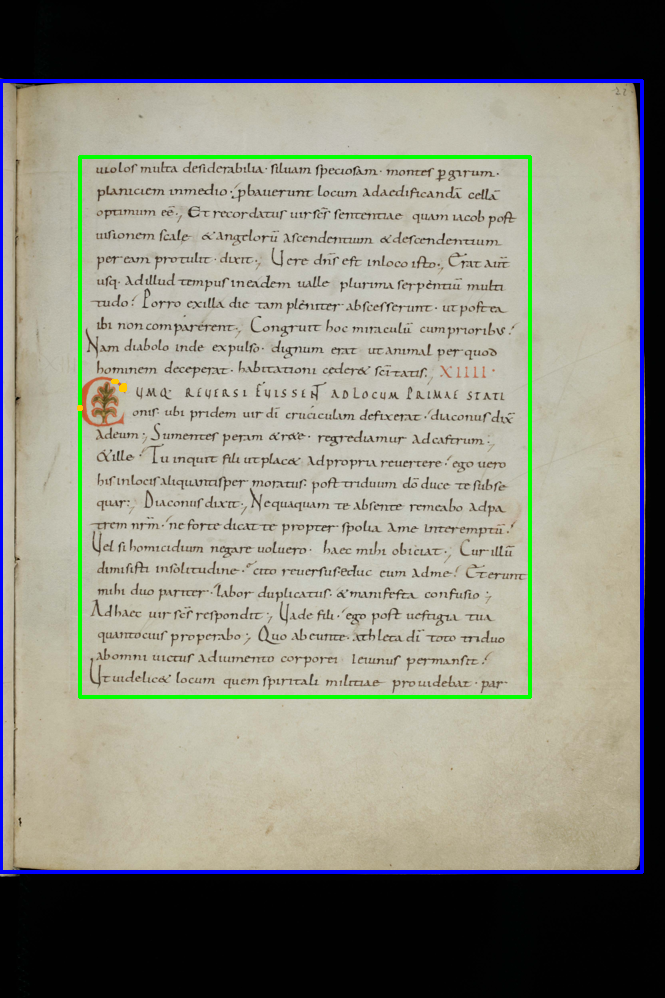 21
uiolos multa desiderabilia · siluam speciosam · montes ꝑ girum ·
planiciem inmedio ; ꝓbauerunt locum adaedificandā cellā
optimum eē ; Et recordatus uir sc̄s sententiae quam iacob post
uisionem scale & angelorū ascendentium & descendentium
per eam protulit · dixit ; Uere dn̄s est inloco isto ; Erat aut̄
usq· ad illud tempus ineadem ualle plurima serpentiū multi
tudo ; Porro ex illa die tam pleniter abscesserunt · ut postea
ibi non comparerent ; Congruit hoc miraculū cum prioribus ;
Nam diabolo inde expulso · dignum erat ut animal per quod
hominem deceperat · habitationi ceder& sc̄itatis ; XIIII ·
CUMQ· REUERSI FUISSENT AD LOCUM PRIMAE STATI
onis · ubi pridem uir dī cruciculam defixerat · diaconus dix̄
ad eum ; Sumentes peram & re&e · regrediamur ad castrum ;
& ille · Tu inquit fili ut plac& ad propria reuertere · ego uero
his in locis aliquantisper moratus · post triduum dō duce te subse
quar ; Diaconus dixit ; Nequaquam te absente remeabo ad pa
trem nr̄m · ne forte dicat te propter spolia a me interemptū ;
Uel si homicidium negare uoluero · haec mihi obiciat ; Cur illū
dimisisti in solitudine · cito reuersus educ eum ad me ; Et erunt
mihi duo pariter · labor duplicatus · & manifesta confusio ;
Ad haec uir sc̄s respondit ; Uade fili · ego post uestigia tua
quantocius properabo ; Quo abeunte · athleta dī toto triduo
ab omni uictus adiumento corporei ieiunus permansit ;
Ut uidelic& locum quem spiritali militiae prouidebat · par